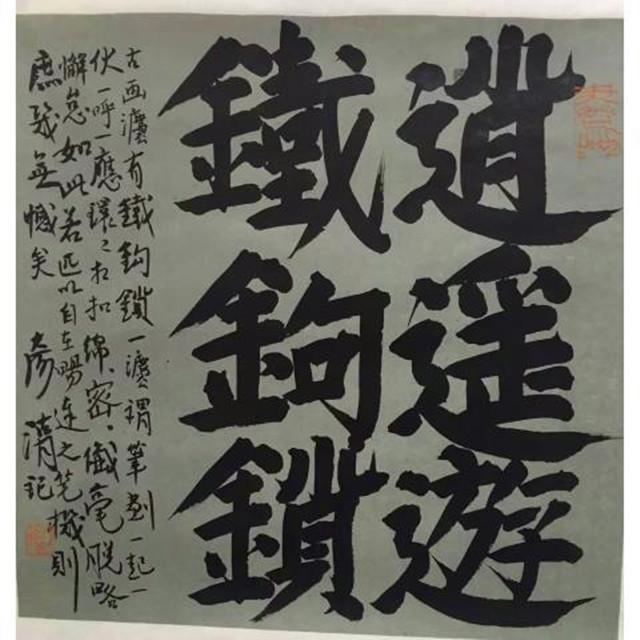 逍遥遊
鐵鉤鎖
古画灋有鐵鉤鎖一灋謂筆劃一起一
伏一呼一應環々相扣綿密纖毫脫略
懈怠如此若匹以自在暢達之笔機則
庶幾無憾矣 彦清記